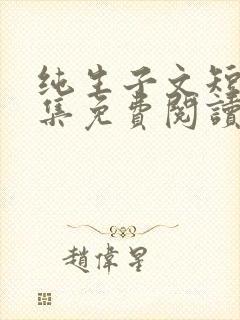 纯生子文短
集免費閱讀
趙偉星